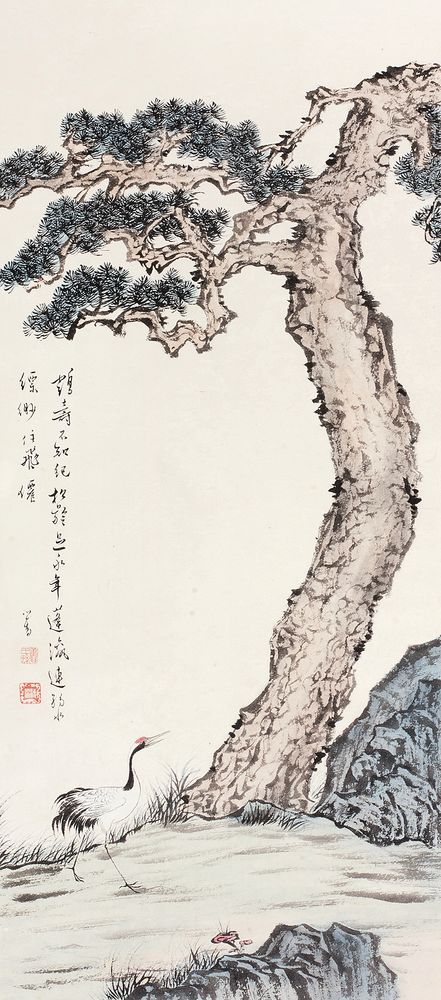 鶴壽不知紀松齡亦永年蓬瀛連弱水
縹緲住飛僊